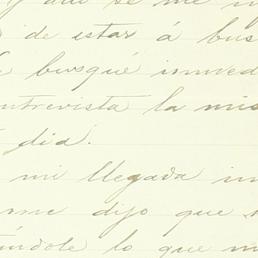 que se me
de estar á bus
busqué inmed
ntrevista la mis
dia.
mi llegada in
me dijo que
ndole lo que